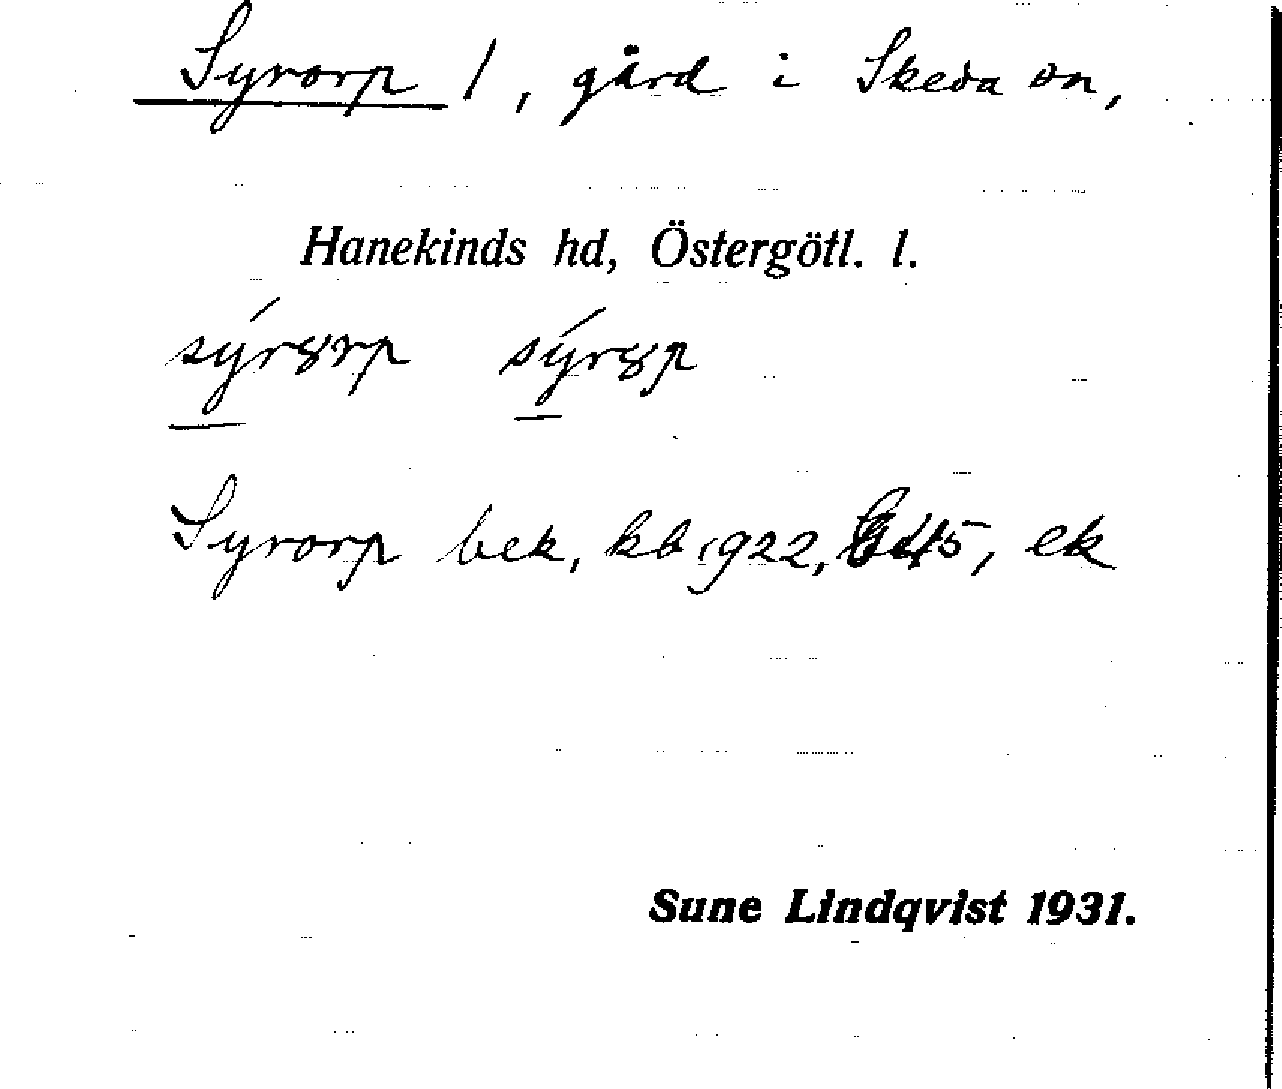 Syrorp 1, gård i Skeda sn,
Hanekinds hd, Östergötl. l.
sýrȣrp sýrȣp
Syrorp bek, kb 1922, G 45, ek
Sune Lindqvist 1931.